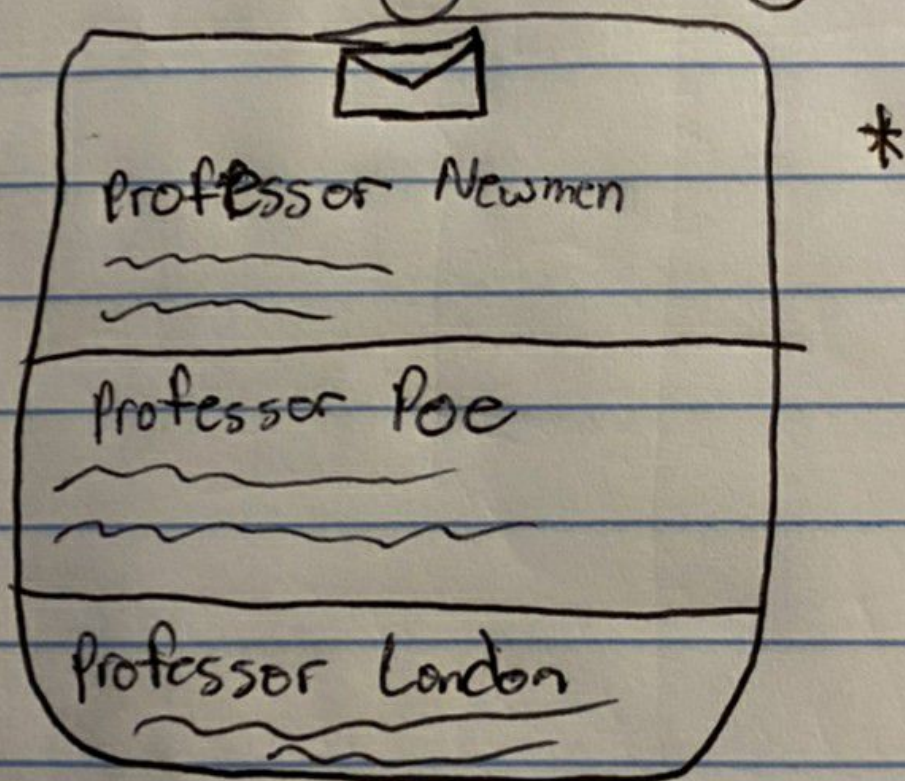 *
Professor Newmen
Professor Poe
Professor London